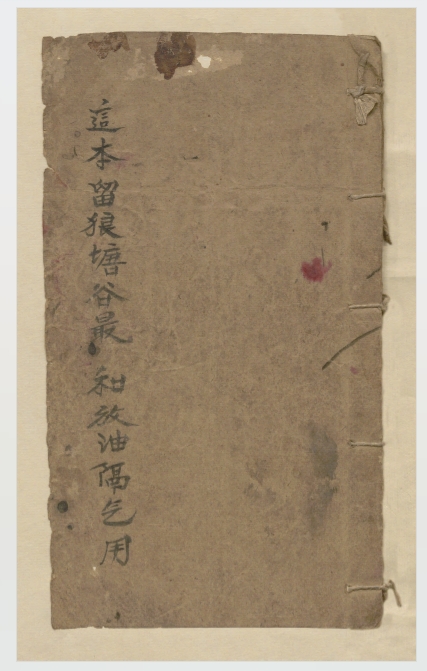 這本留狼塘谷最和放油隔乞用